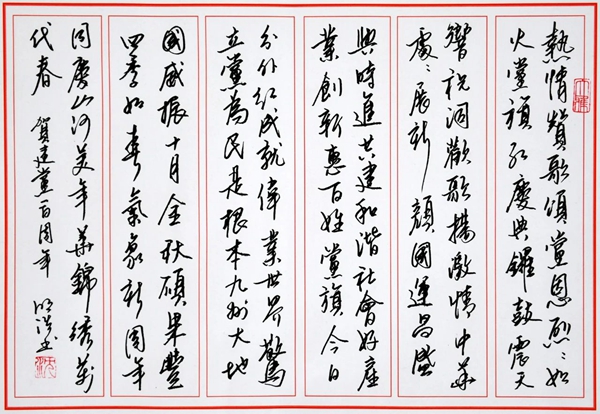 熱情贊歌頌黨恩烈〻如
火黨旗紅慶典鑼鼓震天
響祝詞歡歌揚激情中華
處〻展新顏國運昌盛
與時進共建和諧社會好
業創新惠百姓黨旗今日
分外紅成就偉業世界驚
立黨為民是根本九州大地
國威振十月金秋碩果豐
四季如春氣象新周年
同慶山河美年華錦繡萬
代春 賀建黨一百周年 書